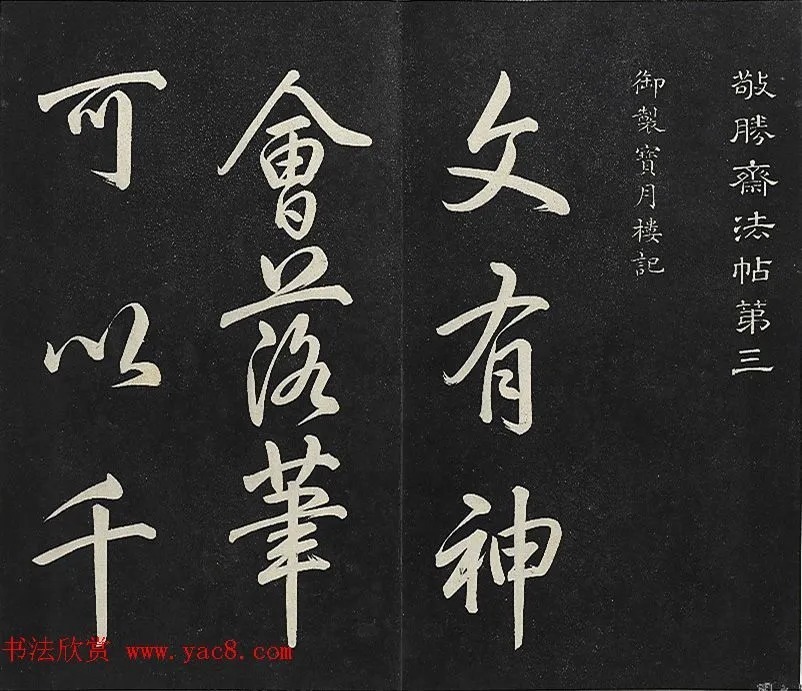 敬勝齋法帖第三
御製寶月樓記
文有神
會落筆
可以千
书法欣赏 www.yac8.com